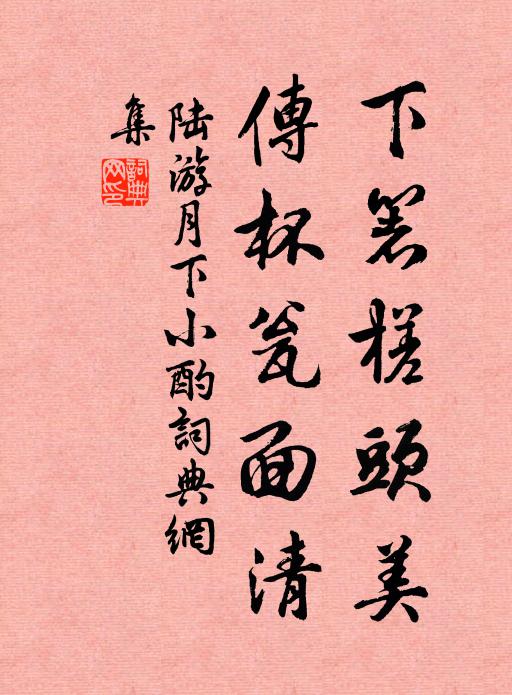 下箸槎頭美
傳杯瓮面清
陆游月下小酌詞典網
集
詞典网印